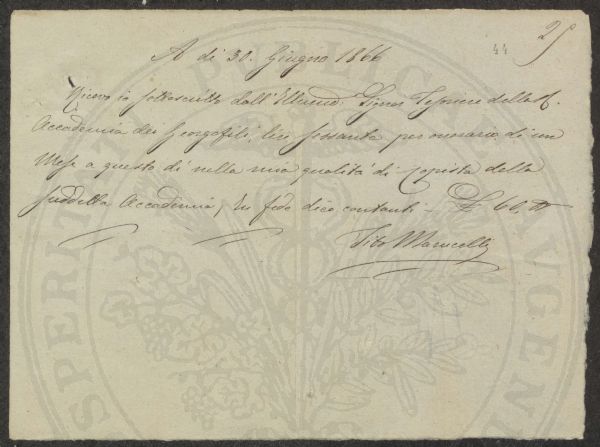 25
44
A di 30. Giugno 1866
Ricevo io sottoscritto dall'Illumo. Signor Tesoriere della R.
Accademia dei Georgofili, lire sessanta per onorario di un
Mese a questo dì nella mia qualità di Copista della
suddetta Accademia, In fede dico contanti - £ 60, "
Tito Marucelli
PERITATI PUBLICAE AUGENDAE